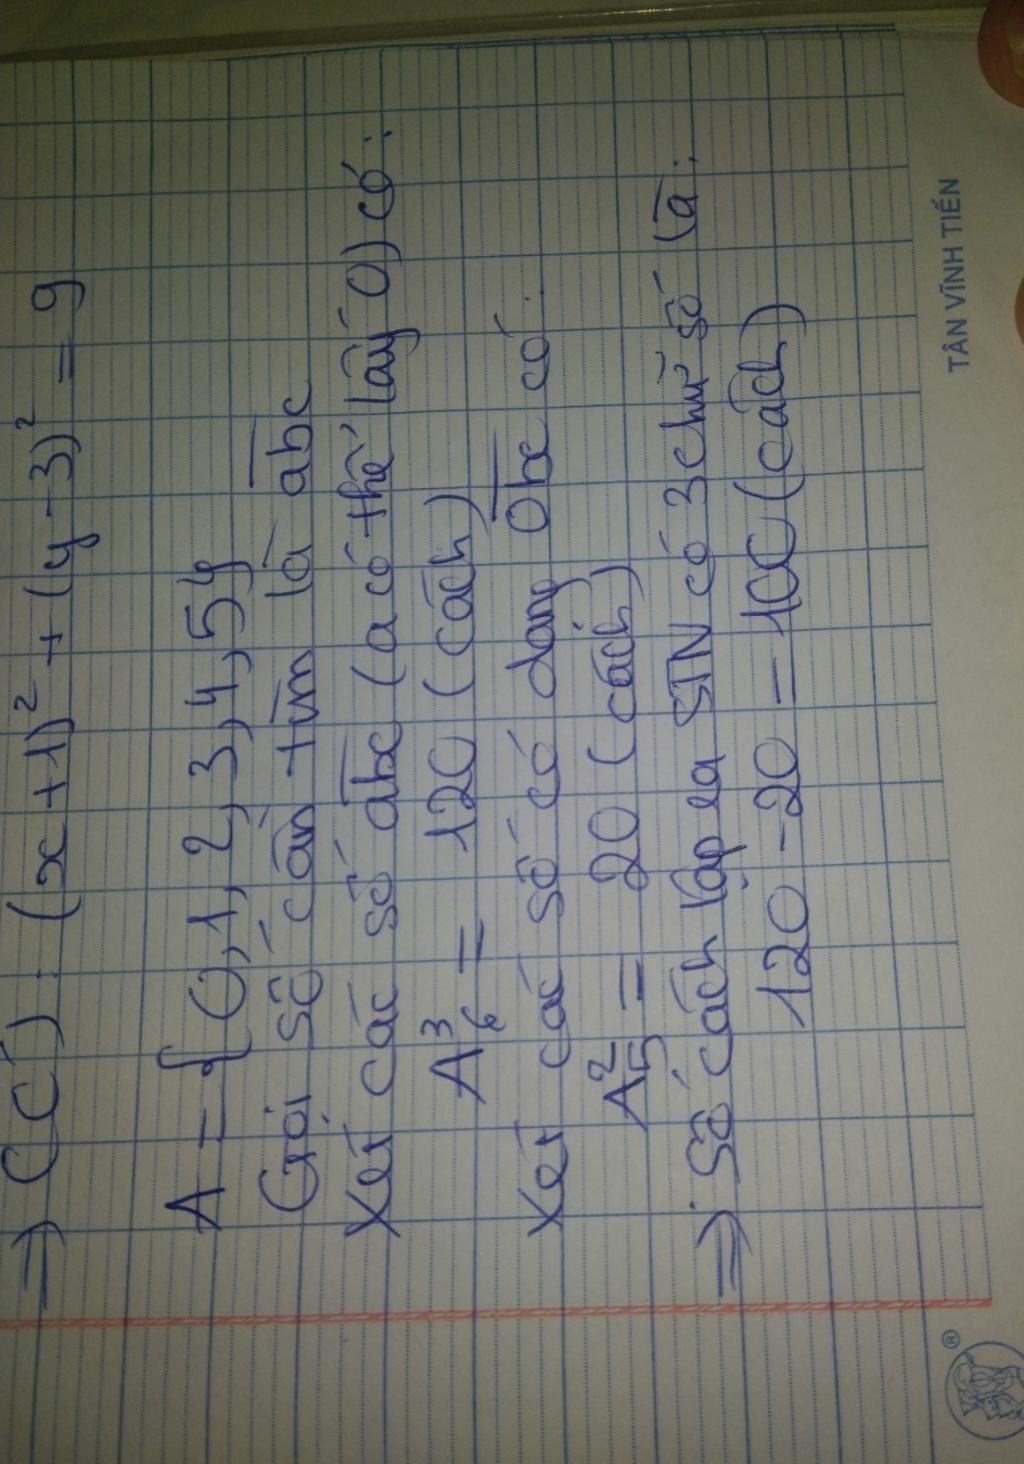 ⇒ (C') : (x+1)² + (y-3)² = 9
A = {0,1,2,3,4,5}
Gọi số cần tìm là abc
Xét các số abc (a có thể lấy 0) có:
A³₆ = 120 (cách)
Xét các số có dạng 0bc có:
A²₅ = 20 (cách)
⇒ Số cách lập ra STN có 3 chữ số là:
120 - 20 = 100 (cách)
TÂN VĨNH TIẾN
®